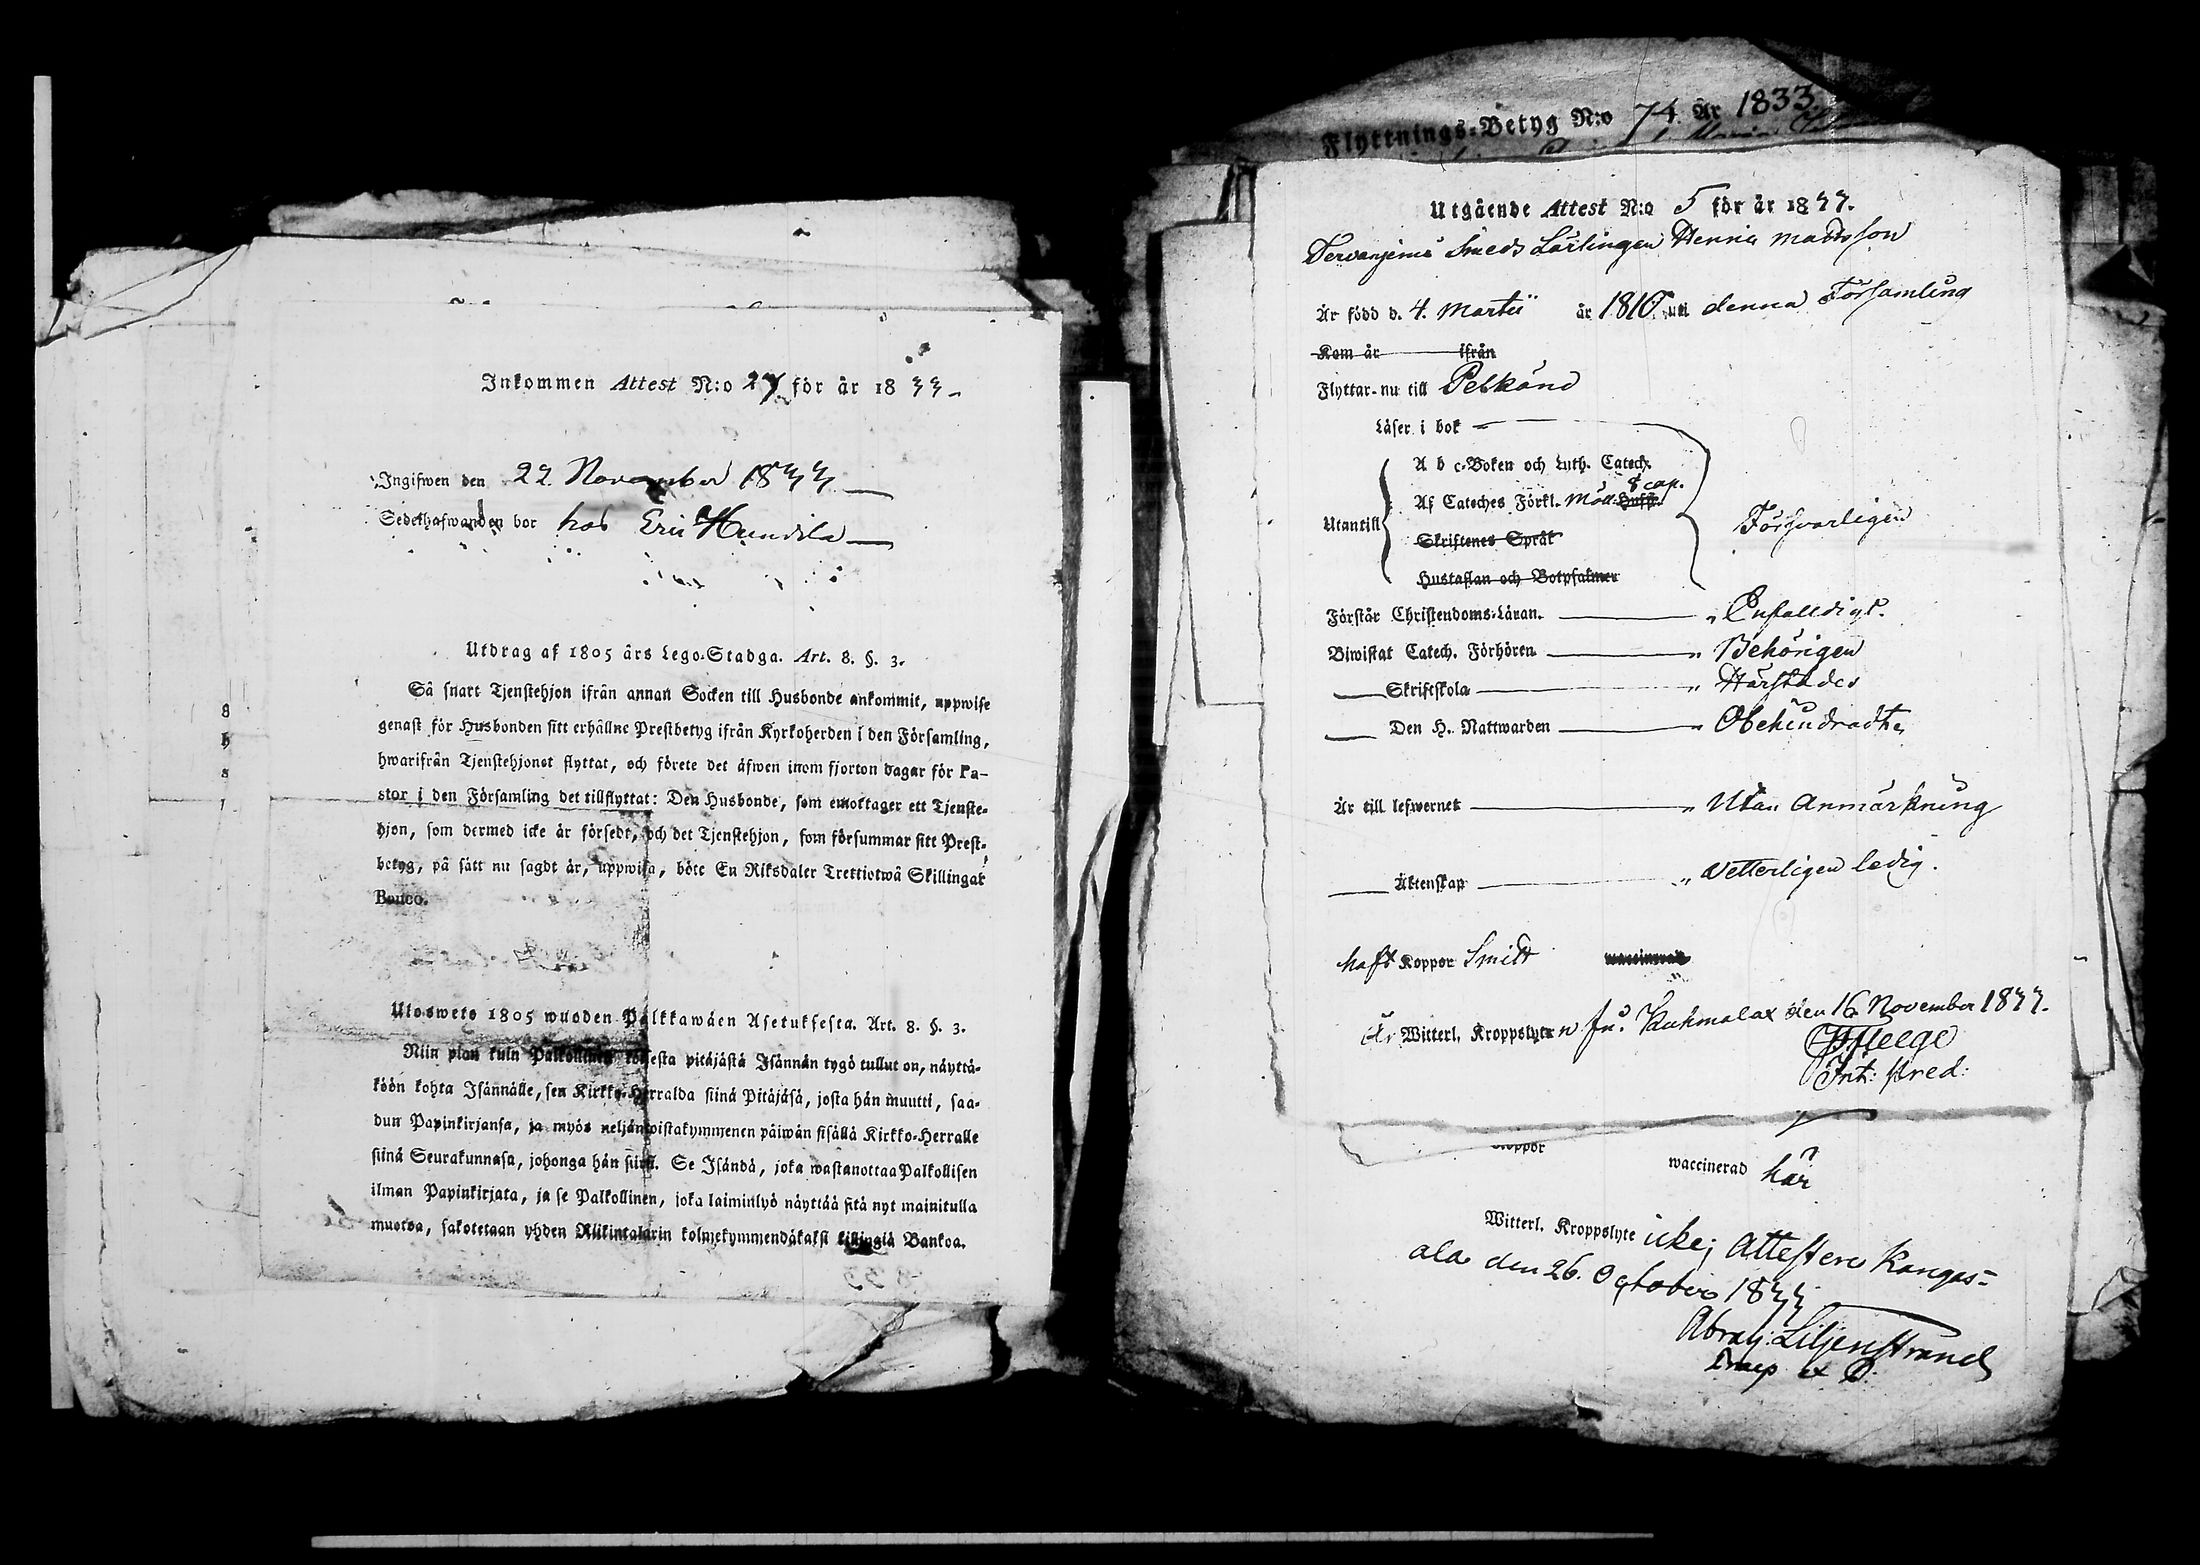 Inkommen Attest N:o 27 för år 1833.
Ingifwen den 22 November 1833.
Sedelhafwanden bor hos Eric Hundila
Utdrag af 1805 års Lego-Stadga. Art. 8. §. 3.
Så snart Tjenstehjon ifrån annan Socken till Husbonde ankommit, uppwise
genast för Husbonden sitt erhållne Prestbetyg ifrån Kyrkoherden i den Församling,
hwarifrån Tjenstehjonet flyttat, och förete det äfwen inom fjorton dagar för Pa-
stor i den Församling det tillflyttat: Den Husbonde, som emottager ett Tjenste-
hjon, som dermed icke är försedt, och det Tjenstehjon, som försummar sitt Prest-
betyg, på sätt nu sagdt är, uppwisa, böte En Riksdaler Trettiotwå Skillingar
Banco.
Utosweto 1805 wuoden Palkkawäen Asetuksesta. Art. 8. §. 3.
Niin pian kuin Palkollinen toisesta pitäjästä Isännän tygö tullut on, näyttä-
köön kohta Isännälle, sen Kirkko-Herralda siinä Pitäjäsä, josta hän muutti, saa-
dun Papinkirjansa, ja myös neljäntoistakymmenen päiwän sisällä Kirkko-Herralle
siinä Seurakunnasa, johonga hän siirsi. Se Isändä, joka wastanottaa Palkollisen
ilman Papinkirjata, ja se Palkollinen, joka laiminlyö näyttää sitä nyt mainitulla
muotoa, sakotetaan yhden Riikintalarin kolmekymmendäkaksi killingiä Bankoa.
8
h
s
1
Flyttnings-Betyg N:o 74. År 1833
Utgående Attest N:o 5 för år 1833.
Smeds Lärlingen Henric Mattsson
Är född d. 4. Martii år 1810 uti denna Församling
Kom år ifrån
Flyttar nu till Pelkäne
Läser i bok
A b c-Boken och Luth. Catech.
8 cap.
Af Cateches Förkl. Möll. Huffs.
Utantill Försvarligen
Skriftenes Språk
Hustaflan och Botpsalmer
Förstår Christendoms-Läran. Enfalldigt.
Biwistat Catech. Förhören Behörigen
Skriftskola Härstädes
Den H. Nattwarden Obehindradt
Är till lefwernet Utan Anmärkning
Äktenskap Vetterligen ledig.
haft Koppor Smitt waccinerad
Är Witterl. Kroppslyten fri. Kuhmalax den 16 November 1833.
koppor waccinerad här
Witterl. Kroppslyte icke; Attesterer Kangas-
ala den 26. October 1833
Abrah: Liljenstrand